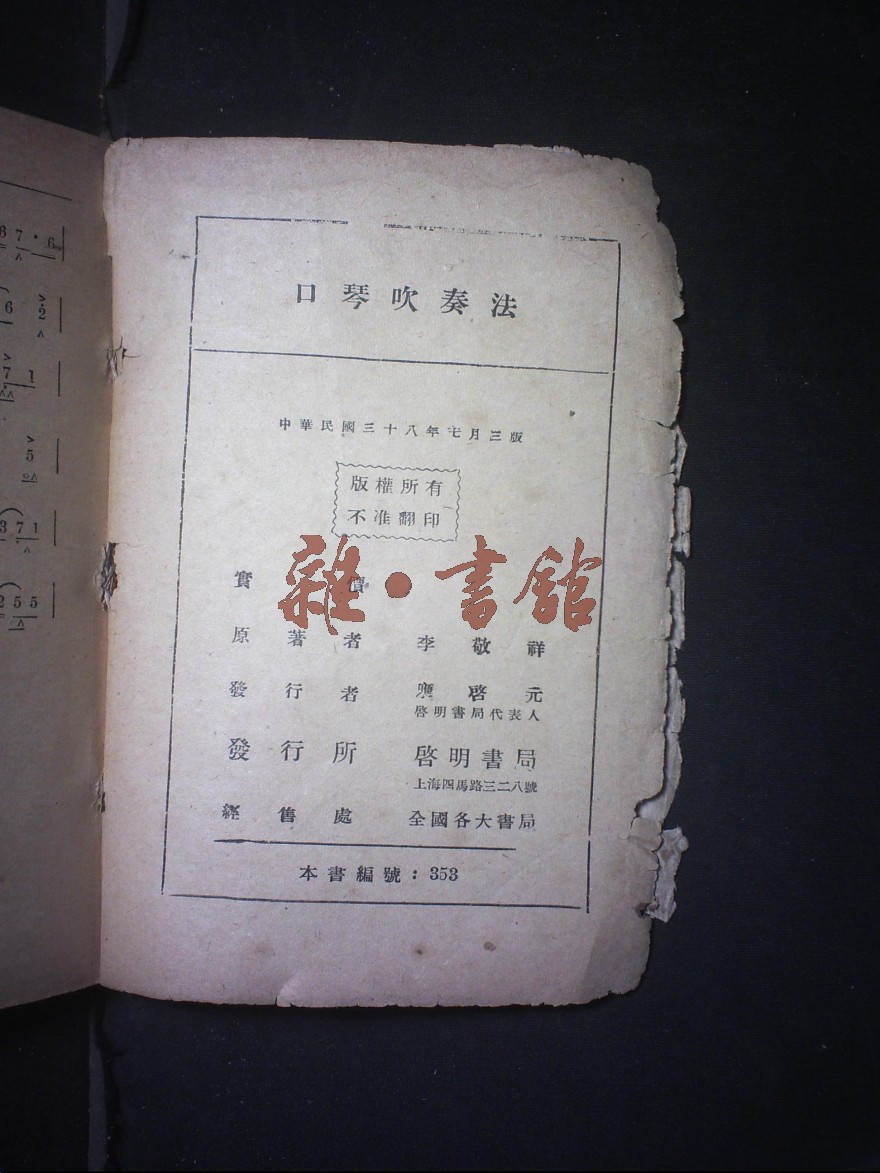 口琴吹奏法
中華民國三十八年七月三版
版權所有
不准翻印
實價
雜·書館
原著者 李敬祥
發行者 應啓元
啓明書局代表人
發行所 啓明書局
上海四馬路三二八號
經售處 全國各大書局
本書編號：353
6 7 · 6
6 2
7 1
5
3 7 1
2 5 5